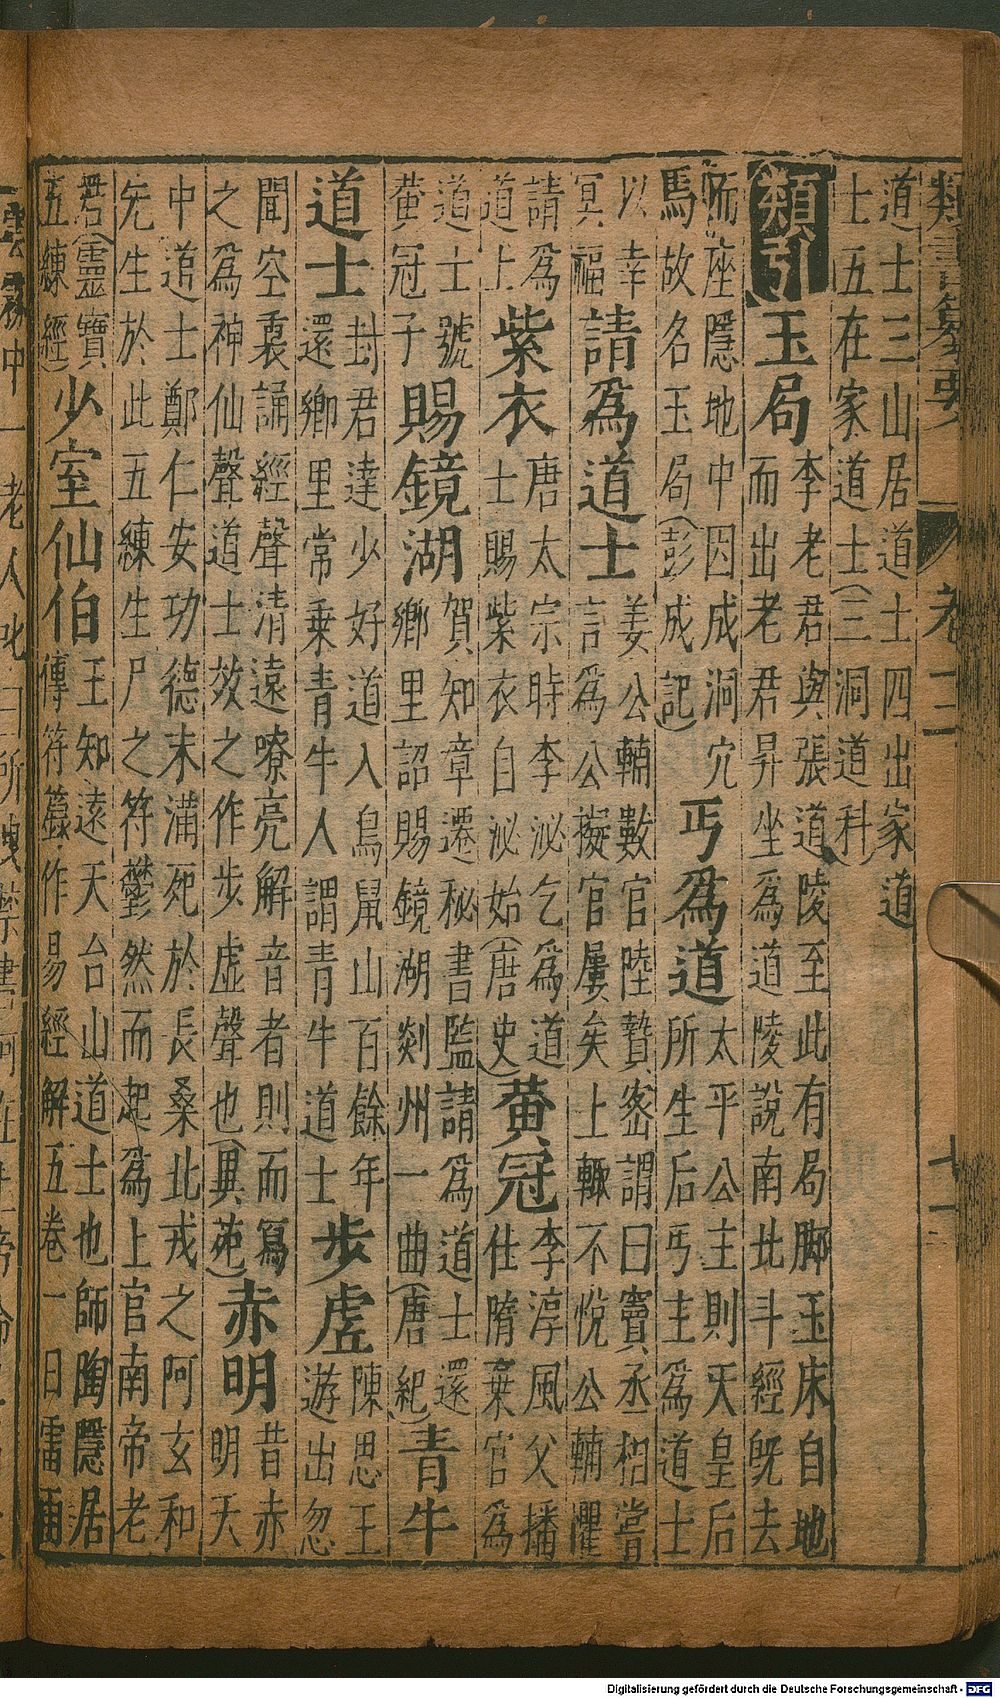 類書纂要
道士三山居道士四出家道
士五在家道士(三洞道科)
類引
玉局
李老君與張道陵至此有局脚玉床自地
而出老君昇坐為道陵說南北斗經旣去
而座隱地中因成洞穴
馬故名玉局(彭成記)
丐為道
太平公主則天皇后
所生后丐主為道士
以幸
冥福
請為道士
姜公輔數官陸贄密謂曰竇丞相嘗
言為公擬官屢矣上輙不悅公輔懼
請為
道上
紫衣
唐太宗時李泌乞為道
士賜紫衣自泌始(唐史)
黄冠
李淳風父播
仕隋棄官為
道士號
黄冠子
賜鏡湖
賀知章遷秘書監請為道士還
鄉里詔賜鏡湖剡州一曲(唐紀)
青牛
道士
封君達少好道入鳥鼠山百餘年
還鄉里常乗青牛人謂青牛道士
步虛
陳思王
遊出忽
聞空裏誦經聲清遠嘹亮解音者則而寫
之為神仙聲道士效之作步虛聲也(異苑)
赤明
昔赤
明天
中道士鄭仁安功德未滿死於長桑北戎之阿玄和
先生於此五練生尸之符鬱然而起為上官南帝老
君(靈寶
五練經)
少室仙伯
王知遠天台山道士也師陶隱居
傳符籙作易經解五卷一日雷雨
Digitalisierung gefördert durch die Deutsche Forschungsgemeinschaft - DFG